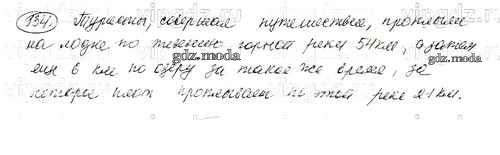 134. Туристы, совершая путешествие, проплыли
на лодке по течению горной реки 54 км, а затем
ещё 6 км по озеру за такое же время, за
которое плот проплывает по этой реке 21 км.
gdz.moda
gdz.moda